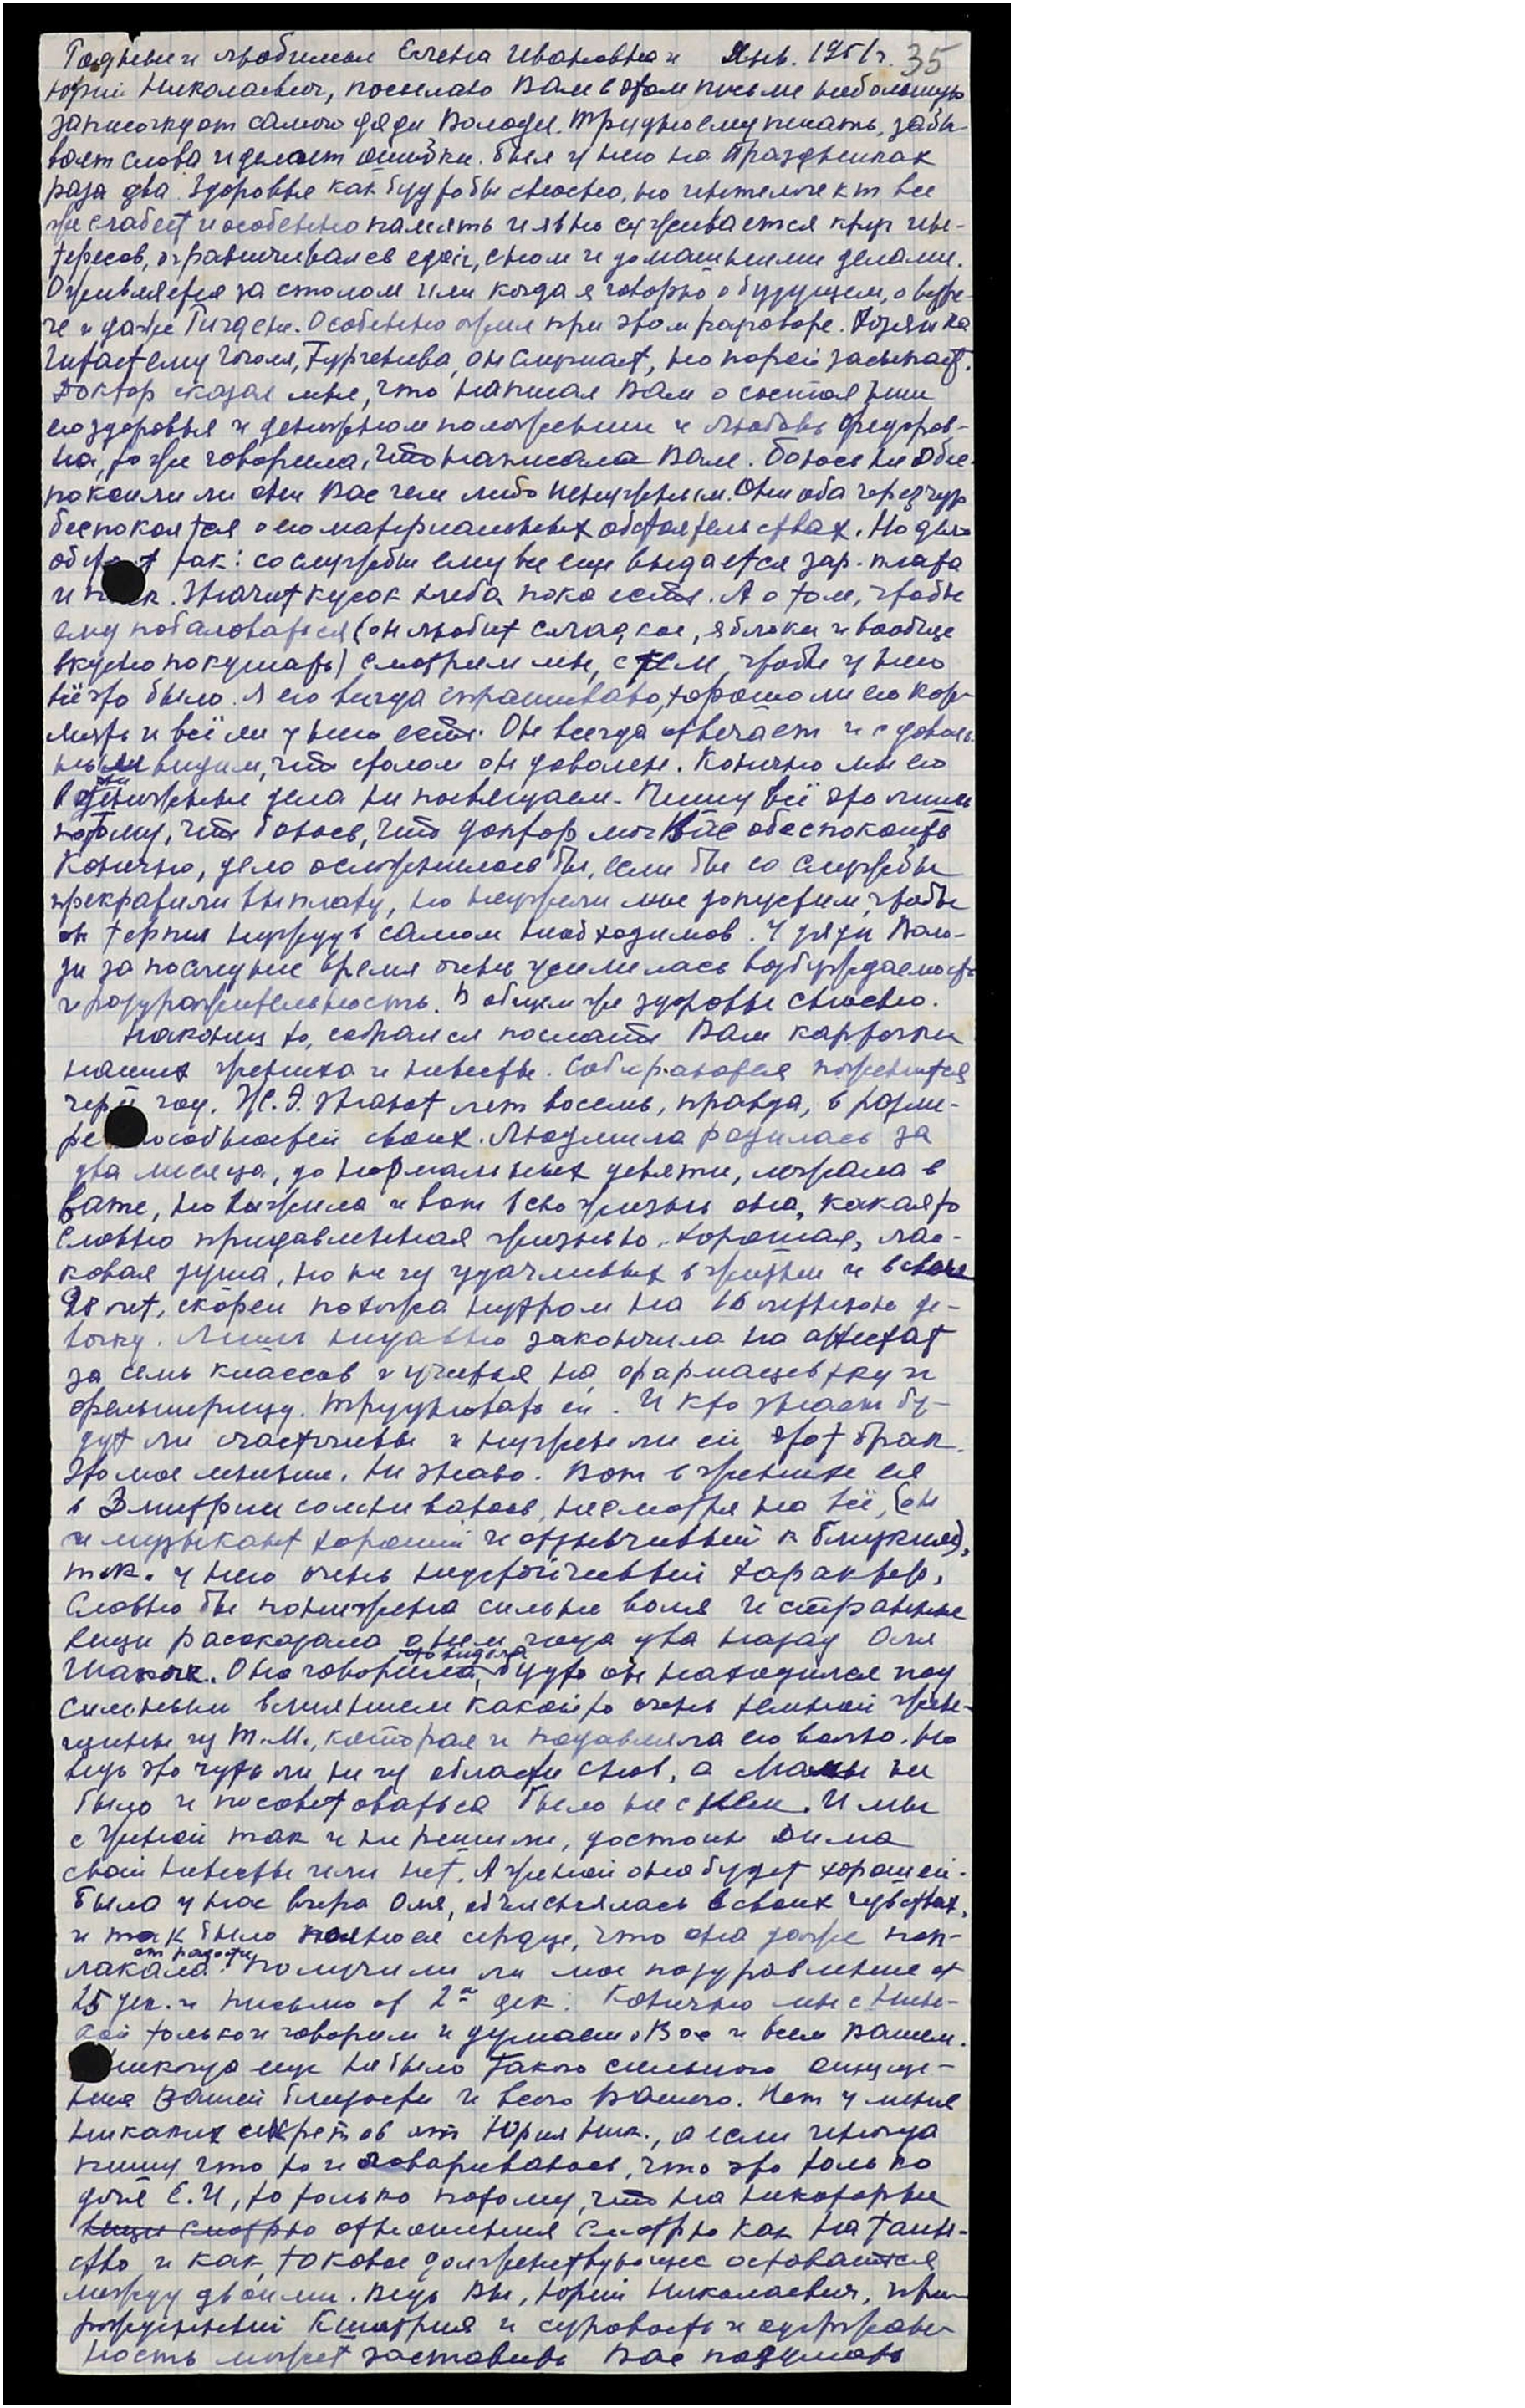 Родные и любимые Елена Ивановна и Янв. 1951г. 35
Юрий Николаевич, посылаю Вам в этом письме небольшую
записочку от самого дяди Володи. Трудно ему писать, забы-
вает слова и делает ошибки. Был у него на праздниках
раза два. Здоровье как будто бы сносно, но интеллект все
же слабеет и особенно память и явно суживается круг ине-
тересов, ограничиваясь едой, сном и домашними делами.
Оживляется за столом или когда я говорю о будущем, о встре-
че и даже Гундене. Особенно ожил при этом разговоре. Хозяйка
читает ему Гоголя, Тургенева, он слушает, но порой засыпает.
Доктор сказал мне, что написал Вам о состоянии
его здоровья и денежном положении и Любовь Федоров-
на, тоже говорила, что написала Вам. Боюсь не обес-
покоили ли они Вас чем либо ненужным. Они оба чересчур
беспокоятся о его материальных обстоятельствах. Но дело
обстоит так: со службы ему все еще выдается зар. плата
и п к. Значит кусок хлеба пока есть. А о том, чтобы
ему побаловаться (он любит сладкое, яблоки и вообще
вкусно покушать) смотрим мы, с тем, чтобы у него
всё это было. Я его всегда спрашиваю, хорошо ли его кор-
мить и всё ли у него есть. Он всегда отвечает и с доволь-
ным видим, что столом он доволен. Конечно мы его
в эти денежные дела не посвящаем. Пишу всё это лишь
потому, что боюсь, что доктор мог Вас обеспокоить
Конечно, дело осложнилось бы, если бы со службы
прекратили выплату, но неужели мы допустим, чтобы
он терпел нужду в самом необходимов. У дяди Воло-
ди за последнее время очень усилилась возбуждаемость
и раздражительность. В общем же здоровье сносно.
Наконец то, собрался послать Вам карточки
наших жениха и невесты. Собираются пожениться
через год. Ж.Э. знают лет восемь, правда, в разме-
ре способностей своих. Людмила родилась за
два месяца, до нормальных девяти, лежала в
вате, но выжила и вот всю жизнь она, какая то
словно придавленная жизнью. Хорошая, лас-
ковая душа, но не из удачливых в жизни и в свои
28 лет, скорей похожа нутром на 16 летнюю де-
вочку. Лишь недавно закончила на аттестат
за семь классов и учится на фармацевтку и
фельшерицу. Трудновато ей. И кто знает бу-
дут ли счастливы и нужен ли ей этот брак.
Это мое мнение. Не знаю. Вот в женихе её
в Дмитрии сомневаюсь, несмотря на всё, (он
и музыкант хороший и отзывчивый к ближним),
т.к. у него очень неустойчивый характер,
словно бы понижена сильно воля и странные
вещи рассказала о нем года два назад Оля
Она говорила, что видела будто он находился под
сильным влиянием какой то очень темной жен-
щины из Т.М., которая и подавляла его волю. Но
ведь это чуть ли не из области снов, а Мамы не
было и посоветоваться было не с кем. И мы
с женой так и не решили, достоин Дима
своей невесты или нет. А женой она будет хорошей.
Была у нас вчера Оля, объяснялась в своих чувствах,
и так было полно ея сердце, что она даже поп-
лакала от радости. Получили ли мое поздравление от
25 дек. и письмо от 2го дек. Конечно мы с Нин-
кой только и говорим и думаем о Вас и всем Вашем.
Никогда еще не было такого сильного ощуще-
ния Вашей близости и всего Вашего. Нет у меня
никаких секретов от Юрия Ник., а если иногда
пишу что то и оговариваюсь, что это только
для Е.И, то только потому, что на некоторые
вещи смотрю отношения смотрю как на таин-
ство и как, таковое долженствующее оставаться
между двоими. Ведь Вы, Юрий Николаевич, при-
рожденный Кшатрия и суровость и сдержан-
ность может заставить Вас подумать